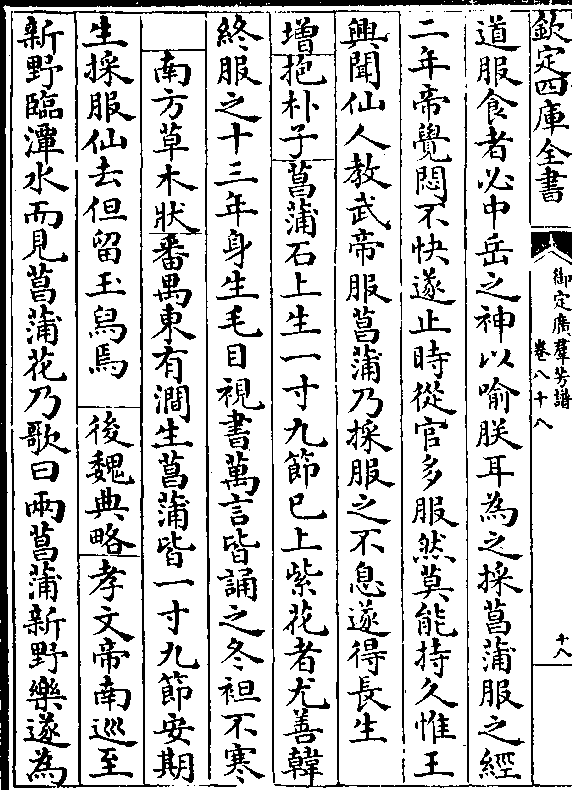 欽定四庫全書
御定廣羣芳譜
卷八十八
十八
道服食者必中岳之神以喻朕耳為之採菖蒲服之經
二年帝覺悶不快遂止時從官多服然莫能持久惟王
興聞仙人教武帝服菖蒲乃採服之不息遂得長生
增抱朴子菖蒲石上生一寸九節已上紫花者尤善韓
終服之十三年身生毛目視書萬言皆誦之冬袒不寒
南方草木狀番禺東有澗生菖蒲皆一寸九節安期
生採服仙去但留玉舄焉 後魏典略孝文帝南巡至
新野臨潭水而見菖蒲花乃歌曰兩菖蒲新野樂遂為